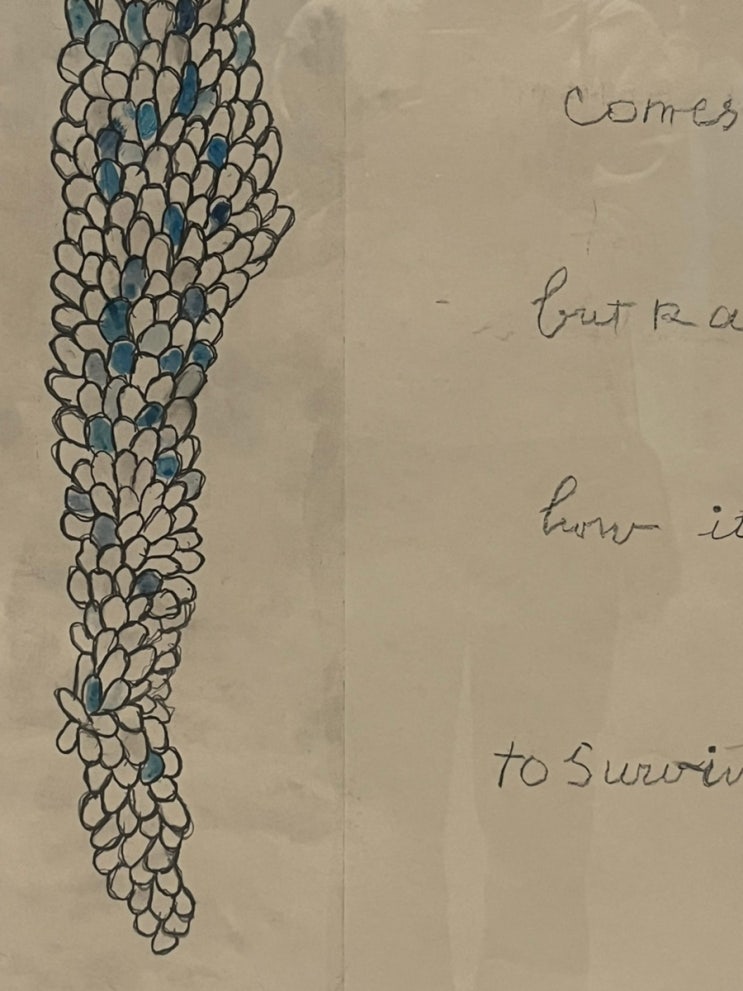 Comes
but
how it
to Surviv